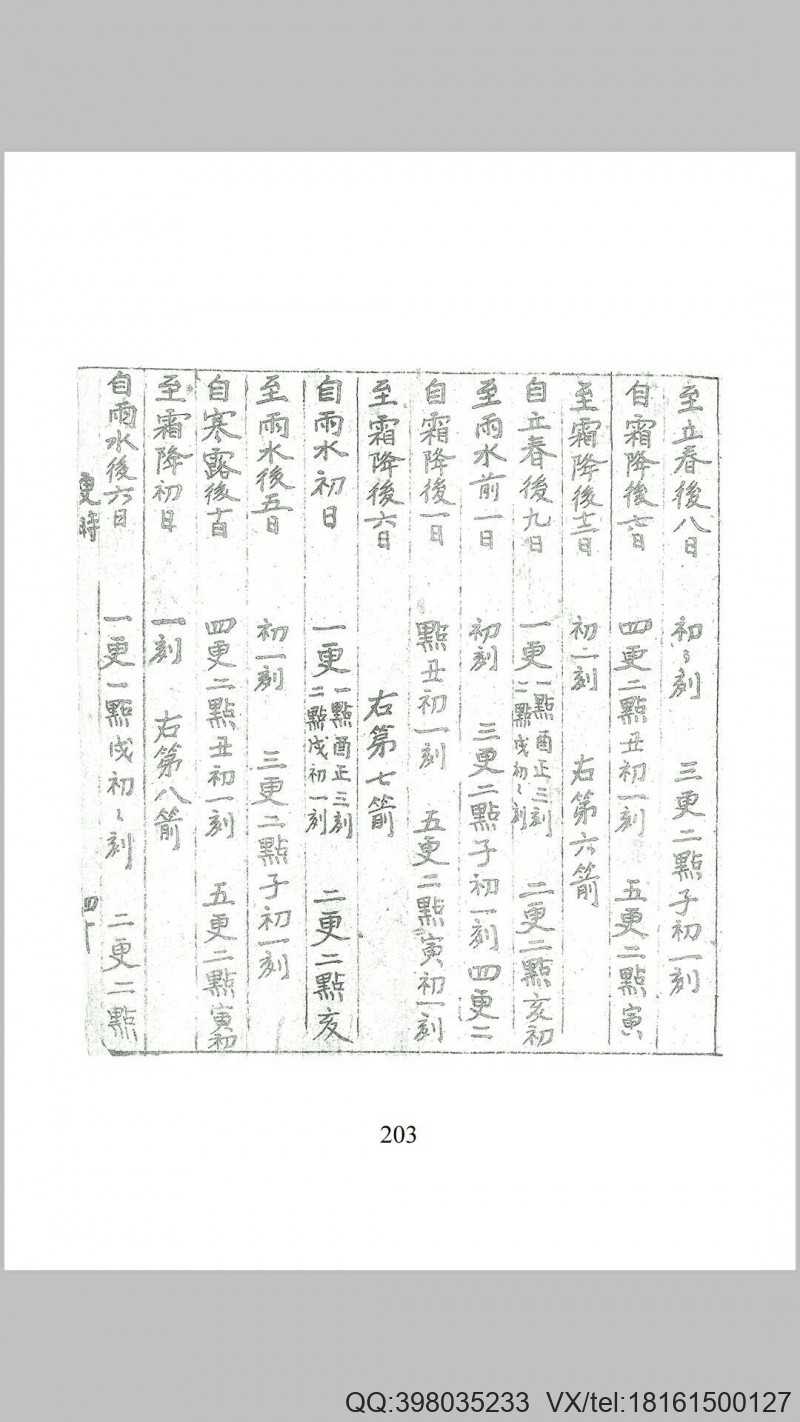 至立春後八日 初〻刻 三更二點子初一刻
自霜降後七日 四更二點丑初一刻 五更二點寅
至霜降後十二日 初二刻 右第六箭
自立春後九日 一更 一點酉正三刻 二點戌初〻刻 二更二點亥初
至雨水前一日 初刻 三更二點子初一刻 四更二
自霜降後一日 點丑初一刻 五更二點寅初一刻
至霜降後六日 右第七箭
自雨水初日 一更 一點酉正三刻 二點戌初一刻 二更二點亥
至雨水後五日 初一刻 三更二點子初一刻
自寒露後十日 四更二點丑初一刻 五更二點寅初
至霜降初日 一刻 右第八箭
自雨水後六日 一更一點戌初〻刻 二更二點
更時 四十
203
QQ:398035233 VX/tel:18161500127